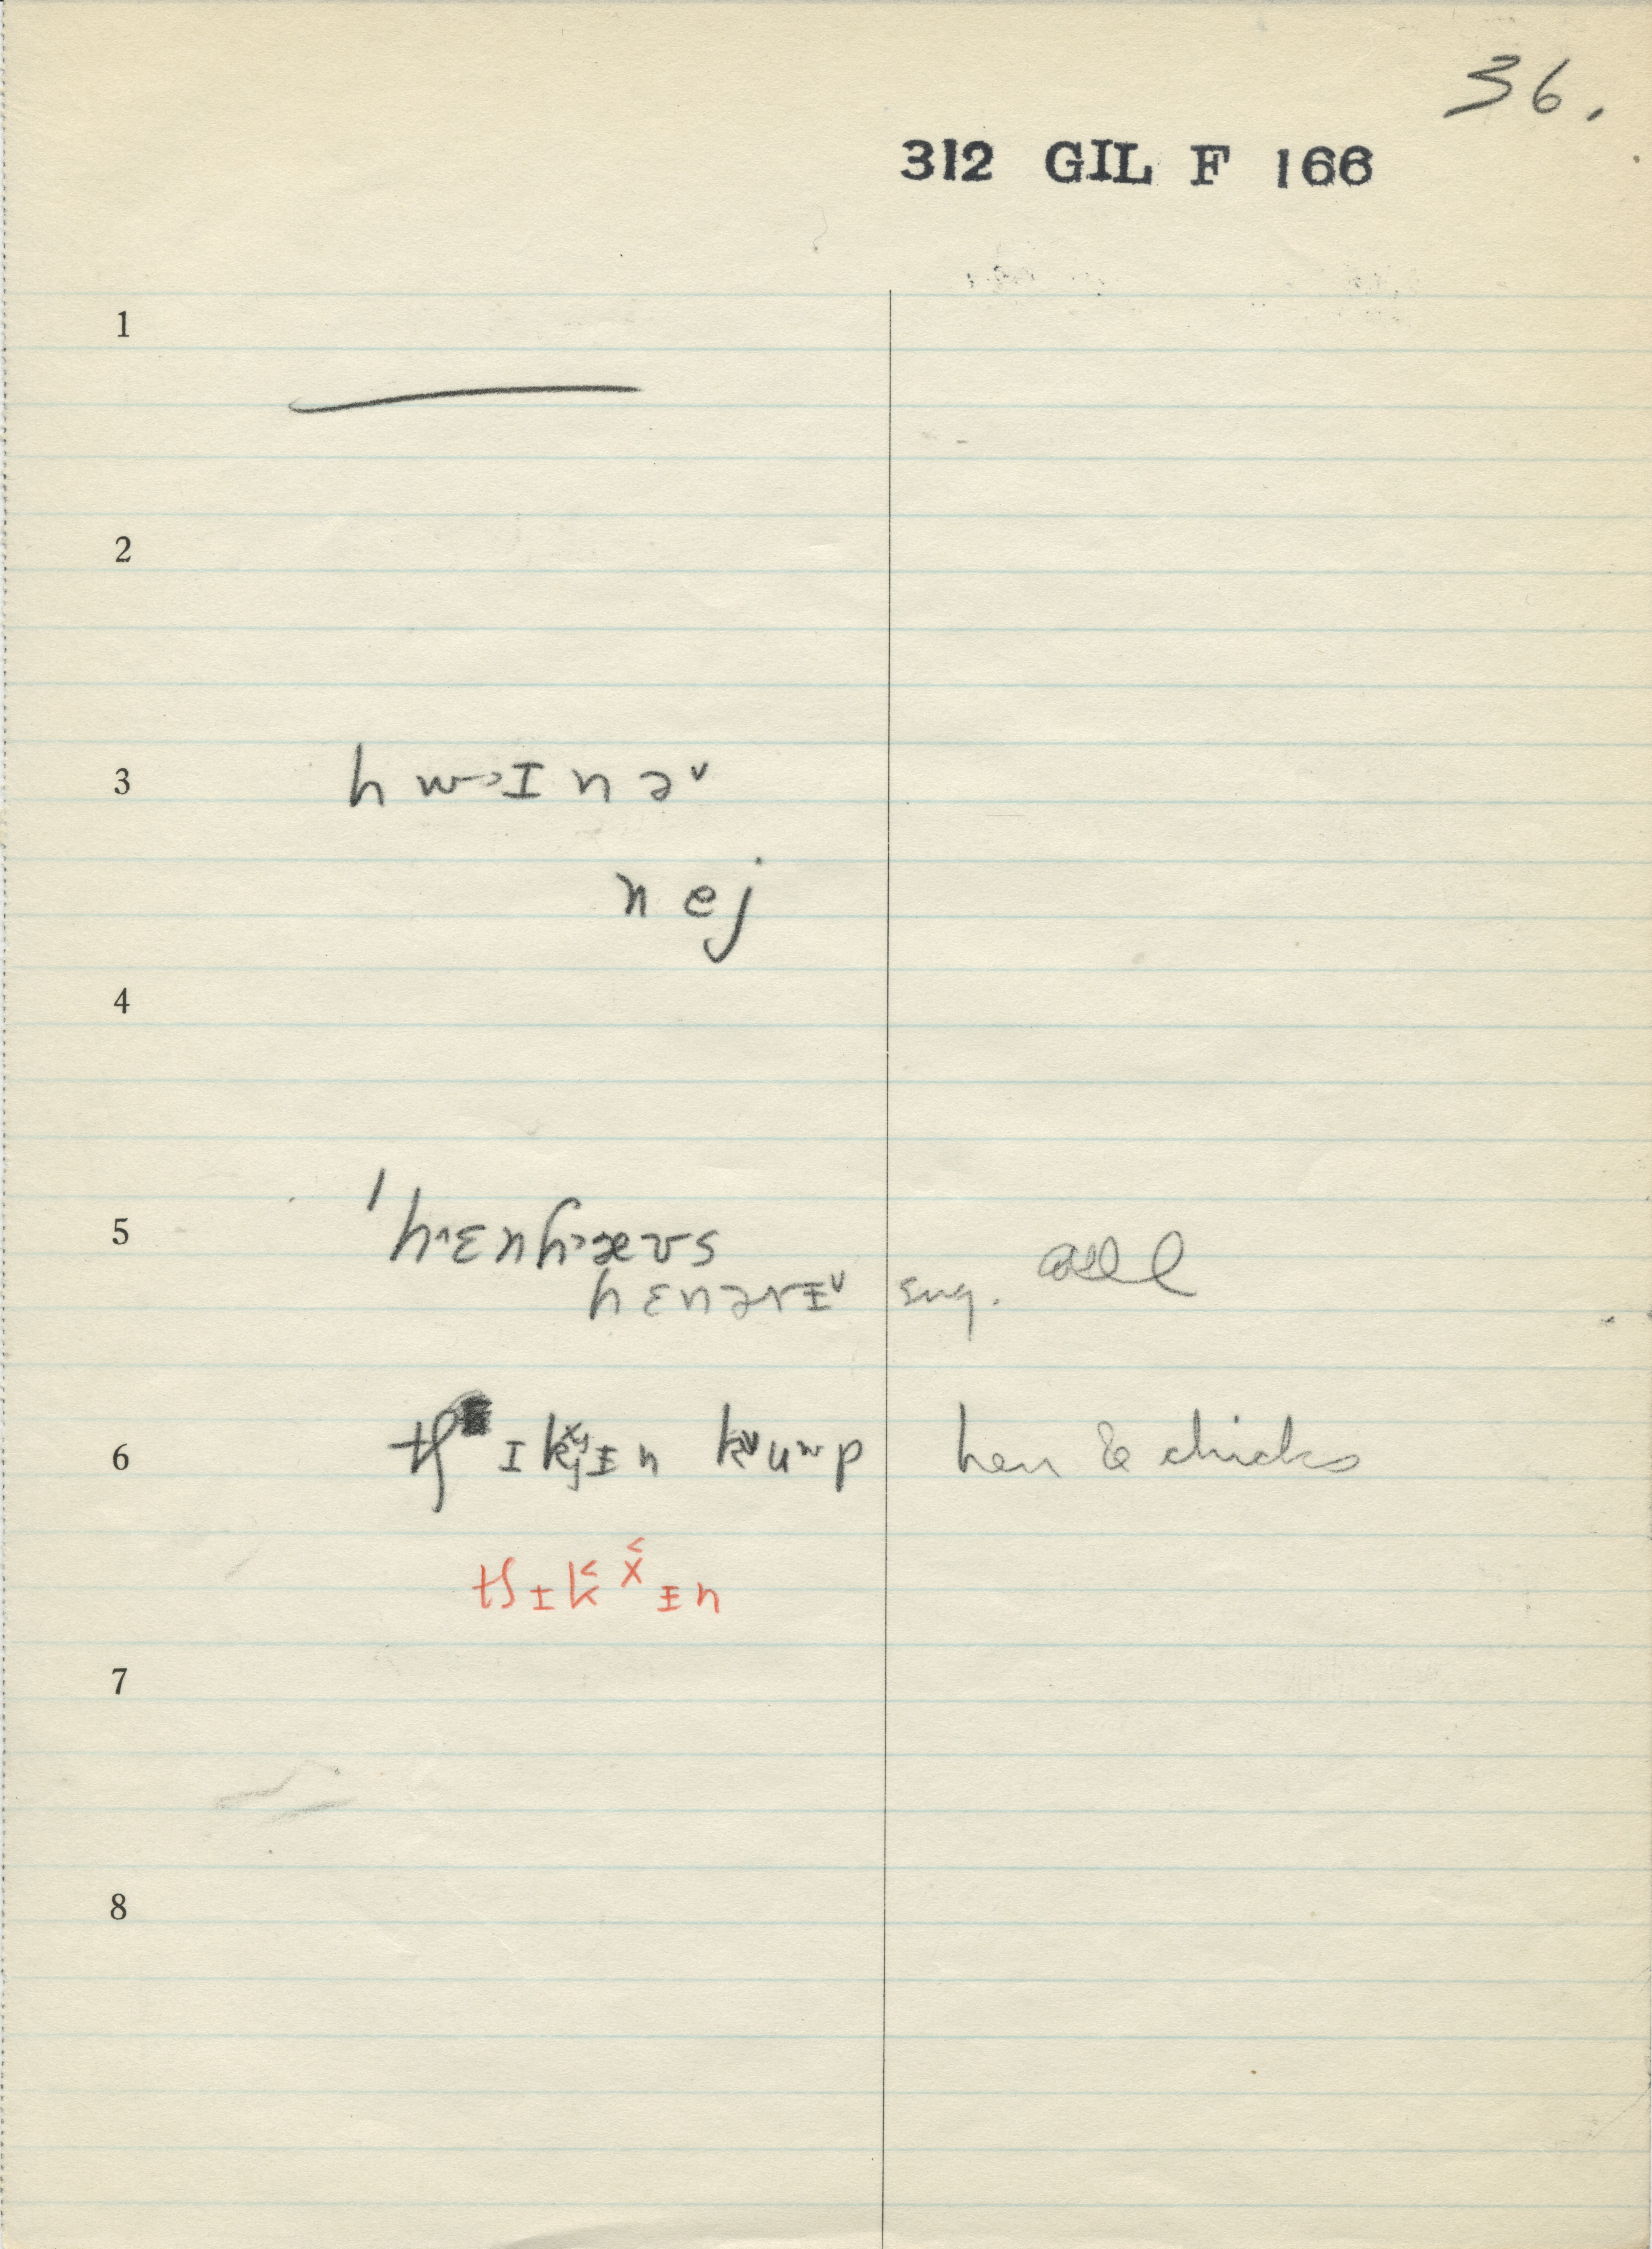 36.
312 GIL F 166
1
2
3 h w ɪ n ə ˅
n e j
4
5 ˈhɛnhæʊs
hɛnərɪ˅ sug.
6 tʃ ɪ k ɪ n kuʷp hen & chicks
tʃ ɪ k˂ x̌ ɪ n
7
8